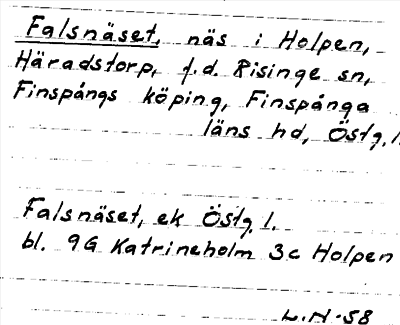 Falsnäset, näs i Holpen,
Häradstorp, f.d. Risinge sn,
Finspångs köping, Finspånga
läns hd, Östg. l.
Falsnäset, ek Östg. l.
bl. 9G Katrineholm 3c Holpen
L.H-58